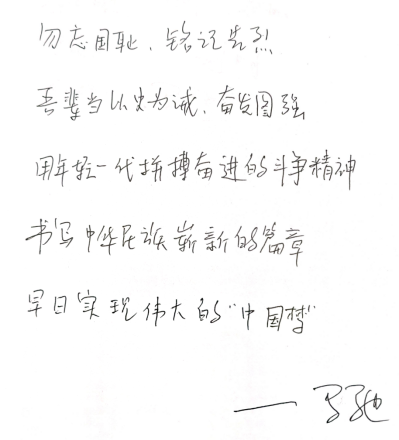 勿忘国耻、铭记先烈
吾辈当以史为诫、奋发图强
用年轻一代拼搏奋进的斗争精神
书写中华民族崭新的篇章
早日实现伟大的“中国梦”
—— 马驰